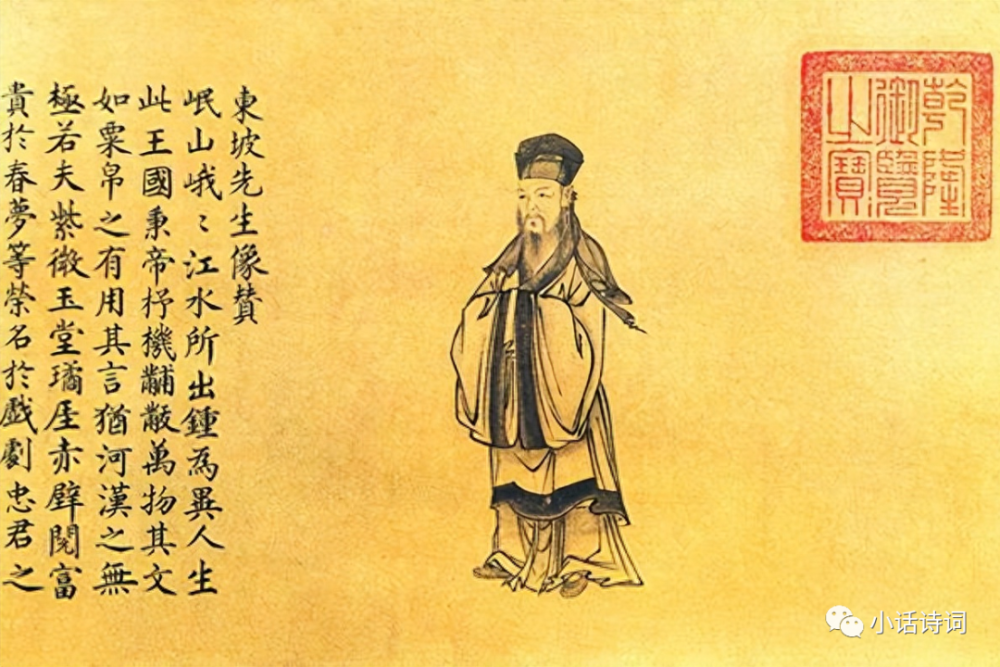 乾隆
御覽
之寶
東坡先生像贊
岷山峨〻江水所出鍾為異人生
此王國秉帝杼機黼黻萬物其文
如粟帛之有用其言猶河漢之無
極若夫紫微玉堂璚厓赤壁閱富
貴於春夢等榮名於戲劇忠君之
小话诗词